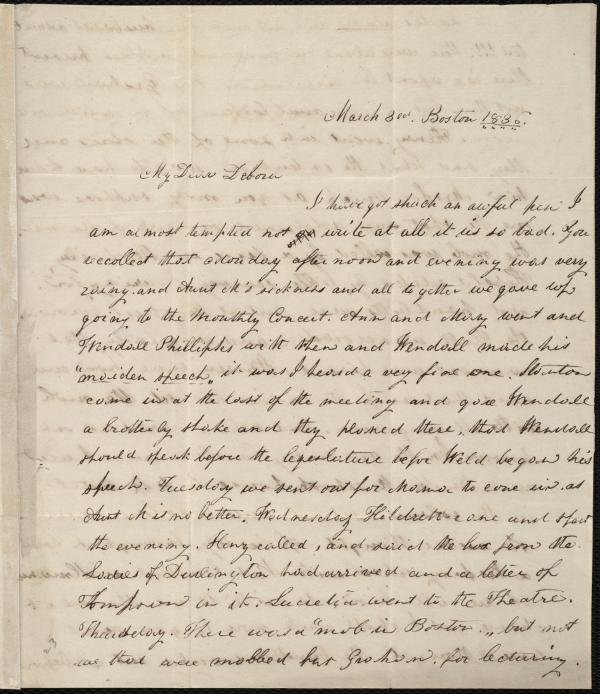 March 3rd. Boston 183
My Dear Debora
I have got shuch an awful pen I
am almost tempted not to write at all it is so bad. You
recollect that Monday afternoon and evening was very
rainy. and Aunt M's sickness and all to gether we gave up
going to the Monthly Concert. Ann and Mary went and
Wendall Philliphs with them and Wendall made his
"maiden speech" it was I heard a very fine one. Stanton
came in at the last of the meeting and gave Wendall
a brotherly shake and they planed there, that Wendall
should speak before the Legeslature befor Weld began his
speech. Tuesday we sent out for Mama to come in. as
Aunt M is no better. Wednesday Hildreth came and spent
the evening. Henry called, and said the box from the
Ladies of Darlington had arrived and a letter of
Tompson in it. Lucretia went to the Theatre.
Thursday. There was a "mob in Boston" but not
we that were mobbed but Graham. for lecturing.